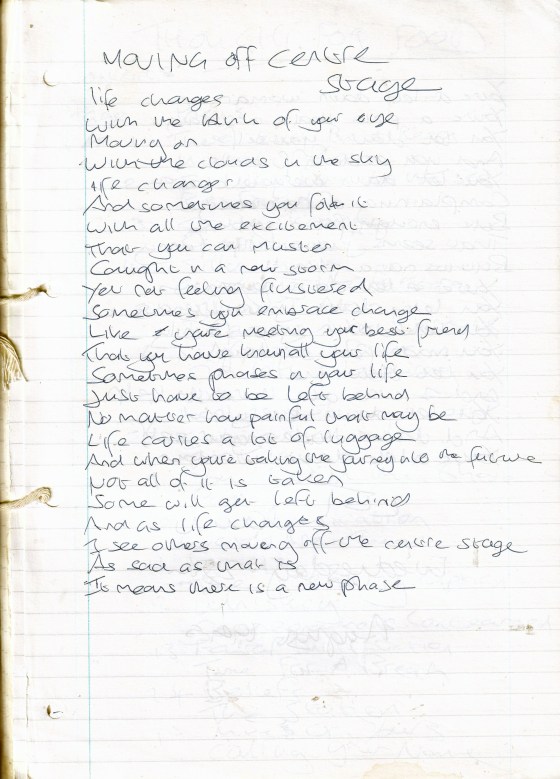 Moving off centre
stage
life changes
with the blink of your eye
Moving on
With the clouds in the sky
life changes
And sometimes you take it
with all the excitement
That you can muster
Caught in a new storm
Yet not feeling flustered
Sometimes you embrace change
Like you're meeting your best friend
That you have known all your life
Sometimes phases in your life
Just have to be left behind
No matter how painful that may be
Life carries a lot of luggage
And when you're taking the journey into the future
Not all of it is taken
Some will get left behind
And as life changes
I see others moving off the centre stage
As sad as that is
It means there is a new phase